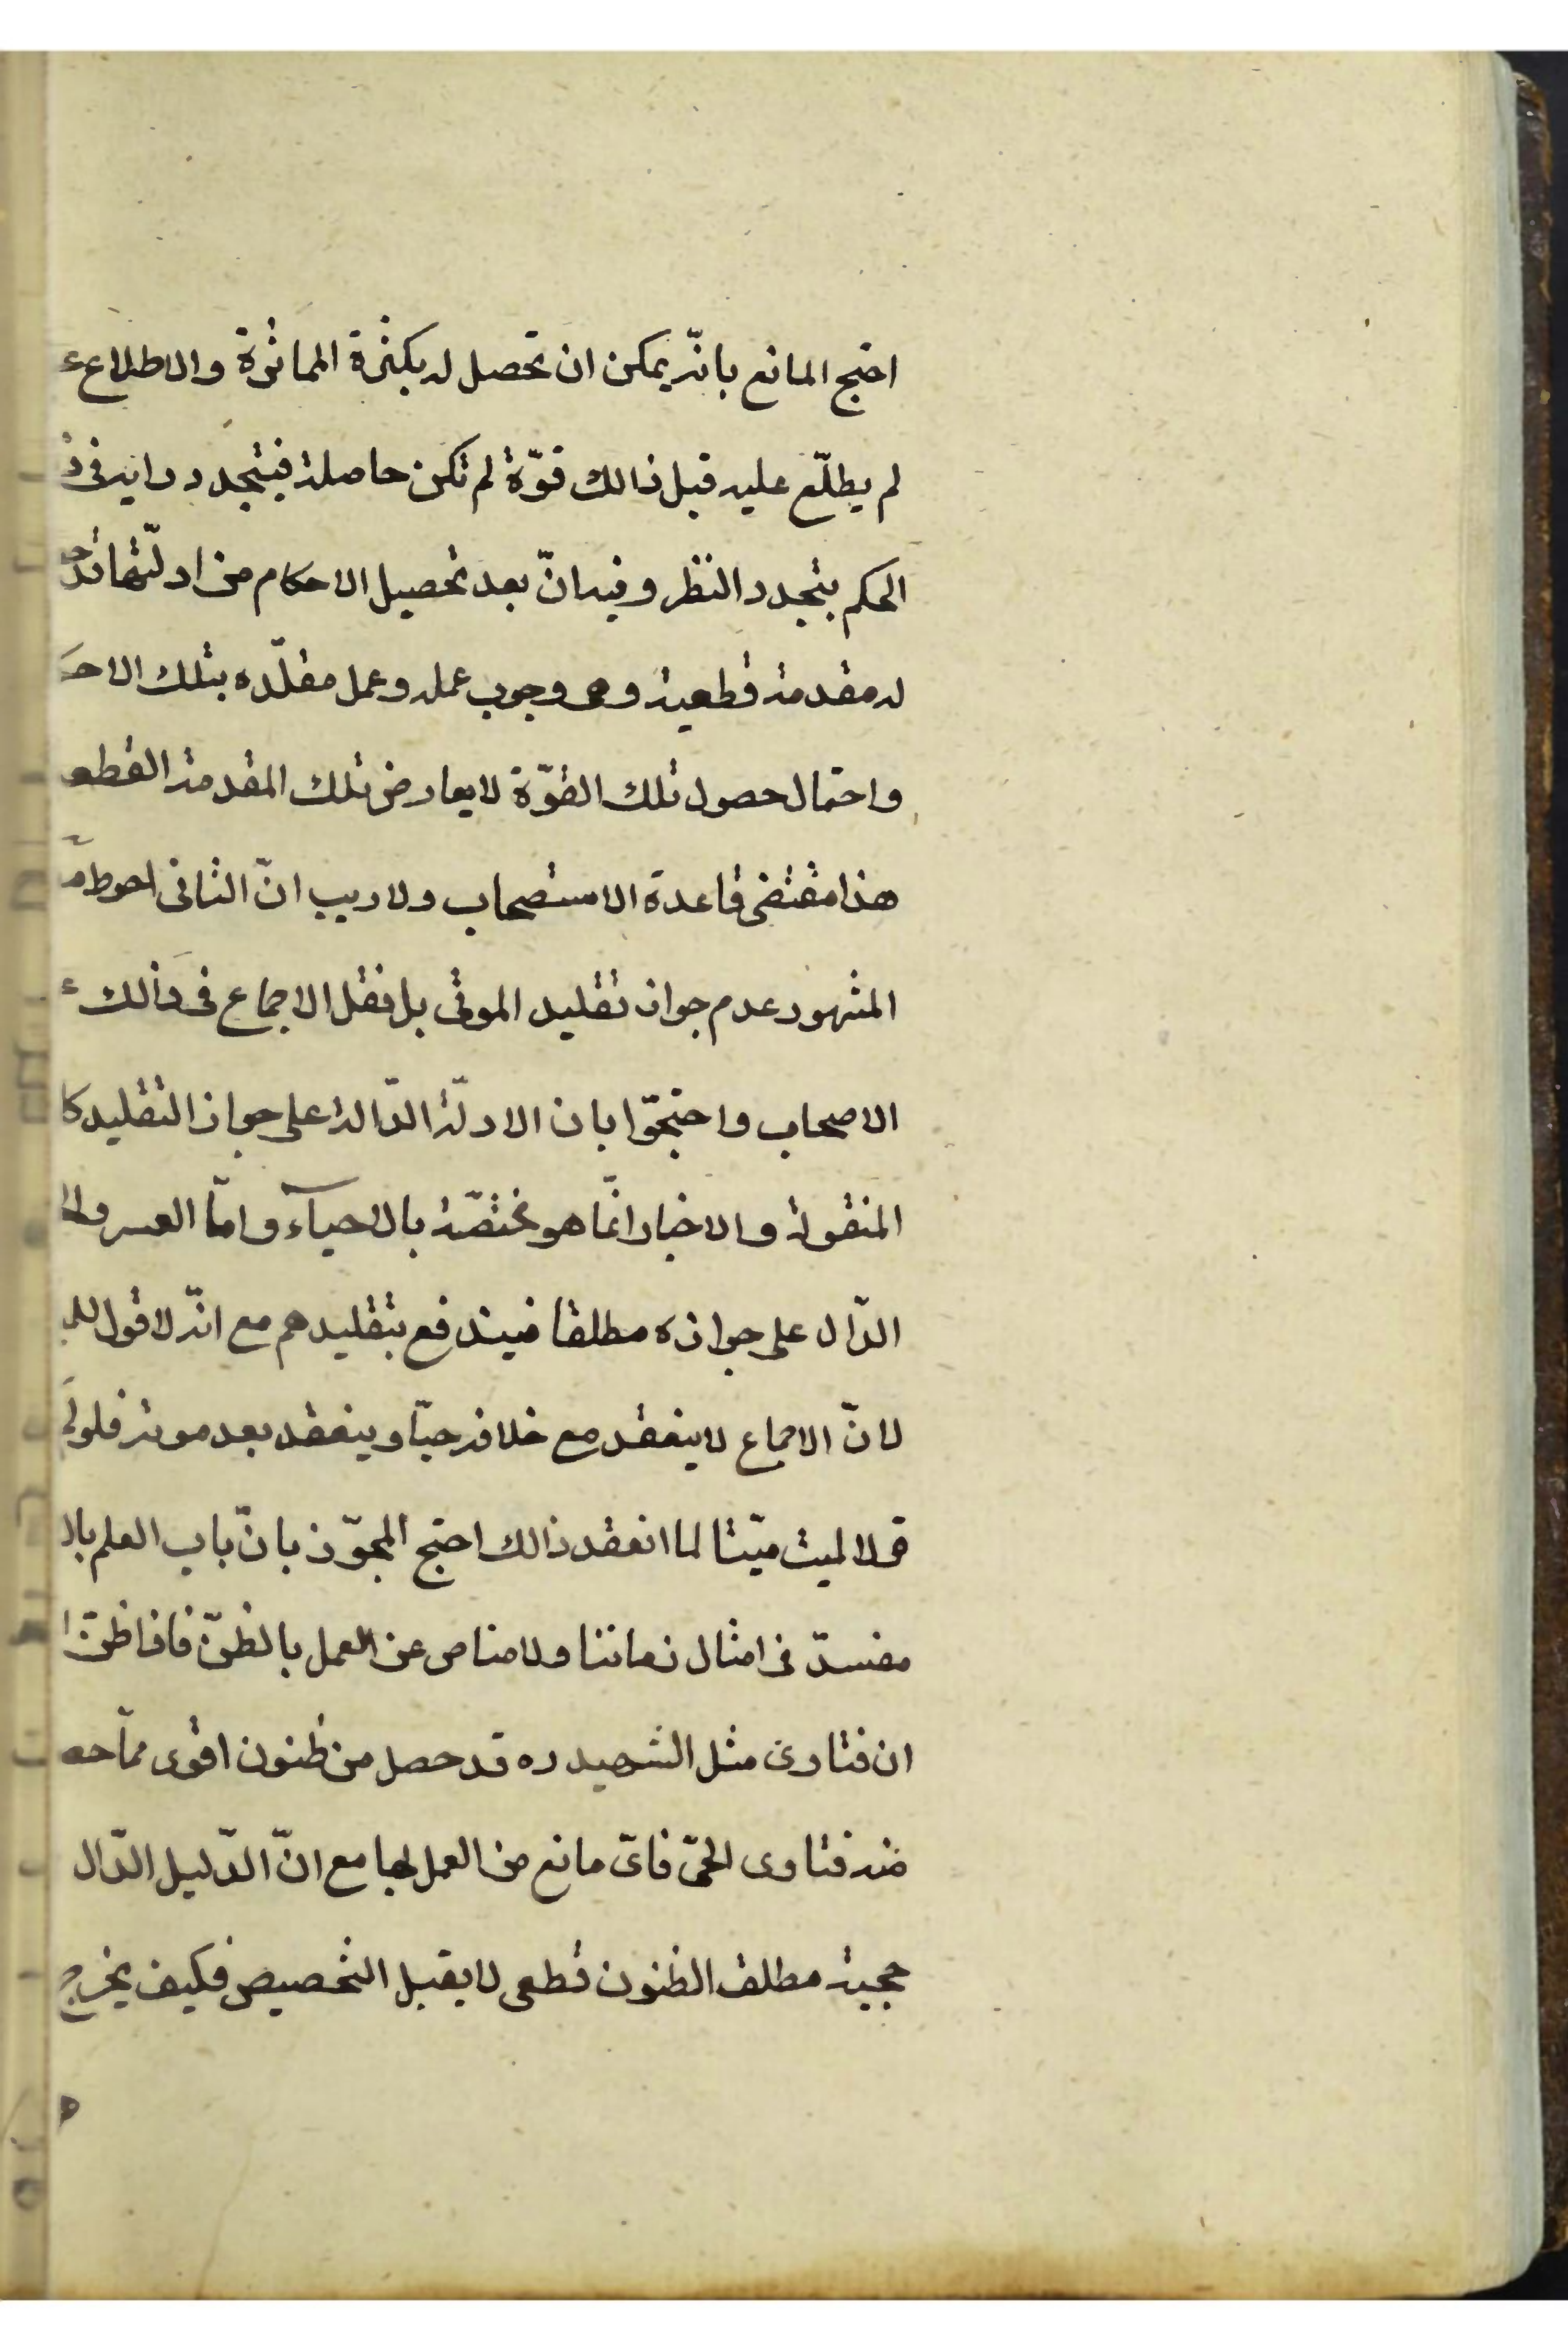 احتج المانع بانّه يمكن ان تحصل له بكثرة المماثرة والاطلاع
لم يطلّع عليه قبل ذالك قوّة لم تكن حاصلة فيتجدد رايه فى
الحكم بتجدد النظر وفيه انّ بعد تحصيل الاحكام من ادلّتها
له مقدمة قطعية وهى وجوب عمله وعمل مقلّده بتلك
واحتمال حصول تلك القوّة لا يعارض تلك المقدمة القطع
هذا مقتضى قاعدة الاستصحاب ولا ريب انّ الثانى احوط
المشهور عدم جواز تقليد الموتى بل نقل الاجماع فى ذالك
الاصحاب واحتجّوا بان الادلّة الدّالة على جواز التقليد كا
المنقولة والاخبار انّما هو مختصّة بالاحياء وامّا العسر
الدّال على جوازه مطلقا فيندفع بتقليدهم مع انّه لا قول
لانّ الاجماع لا ينعقد مع خلافه حيّا وينعقد بعد موته فلو
قلا لميت ميّتا لما انعقد ذالك احتج المجوّز بانّ باب العلم
مفنسدّ فى امثال زماننا ولا مناص عن العمل بالظنّ فاذا ظنّ
ان فتاوى مثل الشهيد ره قد حصل من ظنون اقوى ممّا
منه فتاوى الحىّ فاىّ مانع من العمل بها مع انّ الدّليل الدّال
حجية مطلق الظنون قطعى لا يقبل التخصيص فكيف يخرج